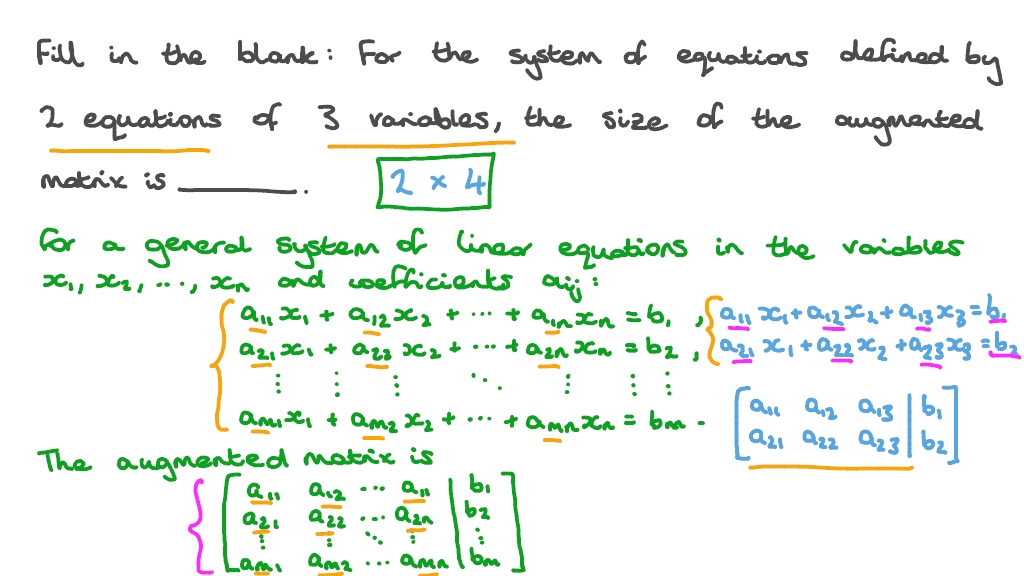 Fill in the blank: For the system of equations defined by
2 equations of 3 variables, the size of the augmented
matrix is ________. 2 × 4
For a general system of linear equations in the variables
x₁, x₂, ..., xₙ and coefficients aᵢⱼ:
a₁₁x₁ + a₁₂x₂ + ⋯ + a₁ₙxₙ = b₁ , a₁₁x₁ + a₁₂x₂ + a₁₃x₃ = b₁
a₂₁x₁ + a₂₂x₂ + ⋯ + a₂ₙxₙ = b₂ , a₂₁x₁ + a₂₂x₂ + a₂₃x₃ = b₂
⋮ ⋮ ⋮ ⋱ ⋮ ⋮ ⋮
aₘ₁x₁ + aₘ₂x₂ + ⋯ + aₘₙxₙ = bₘ .
a₁₁ a₁₂ a₁₃ | b₁
a₂₁ a₂₂ a₂₃ | b₂
The augmented matrix is
a₁₁ a₁₂ ⋯ a₁₁ | b₁
a₂₁ a₂₂ ⋯ a₂ₙ | b₂
⋮ ⋮ ⋱ ⋮ | ⋮
aₘ₁ aₘ₂ ⋯ aₘₙ | bₘ